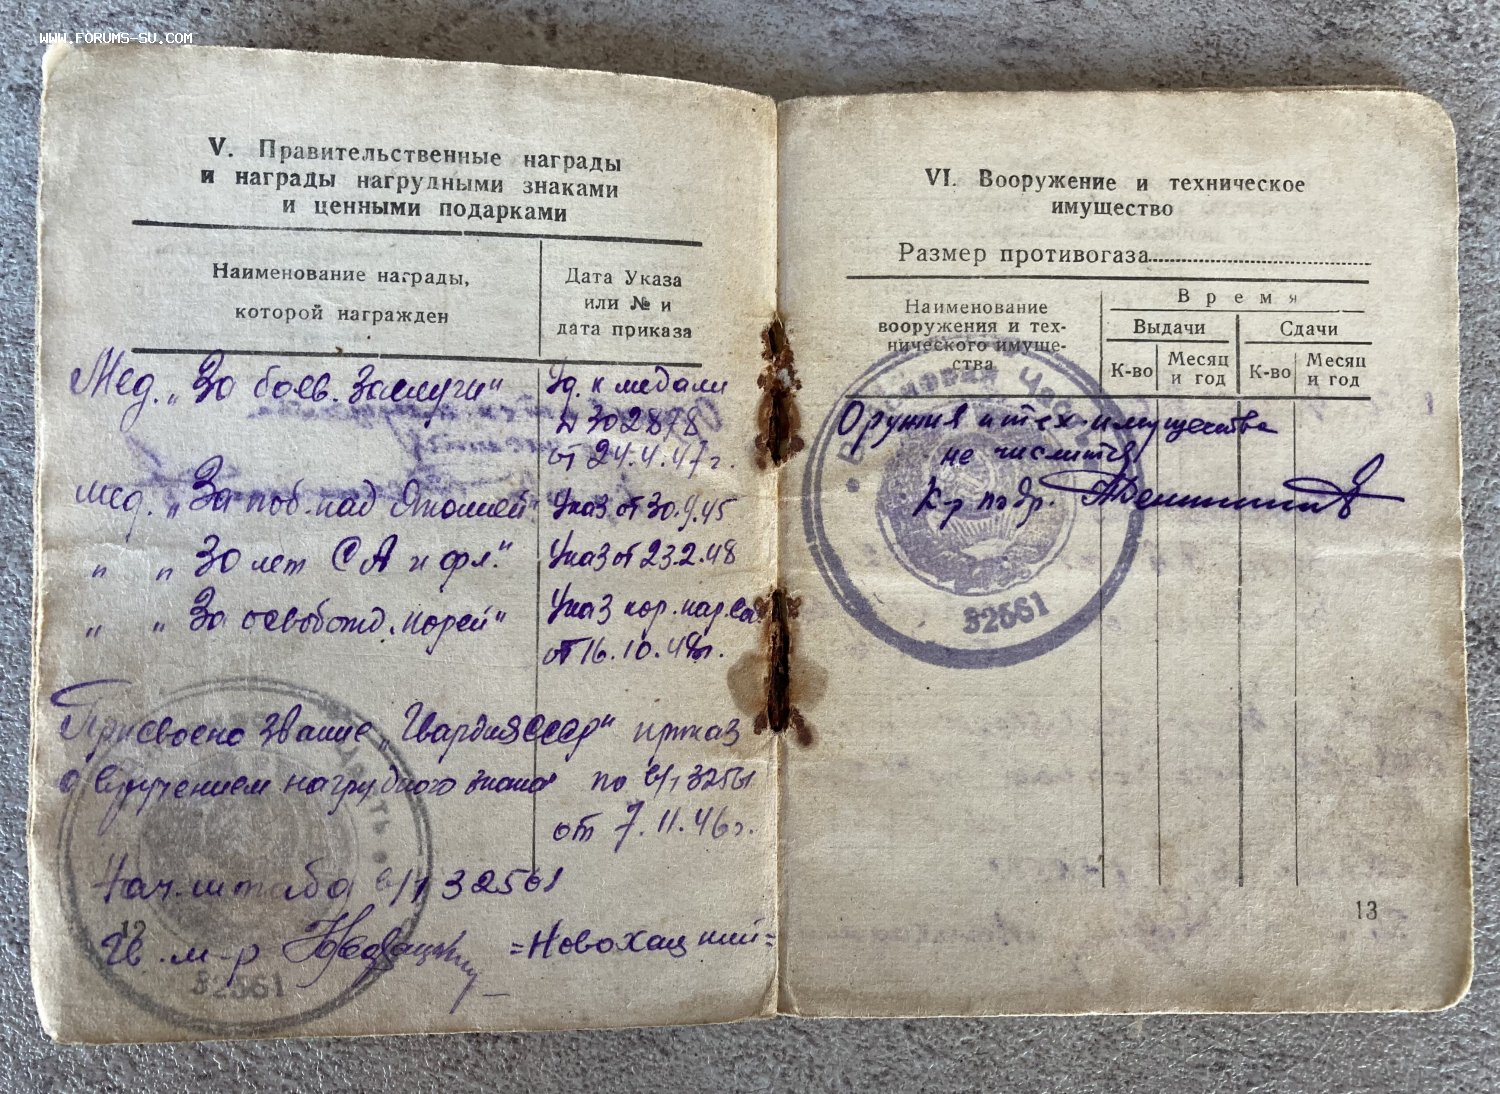 WWW.FORUMS-SU.COM
V. Правительственные награды
и награды нагрудными знаками
и ценными подарками
Наименование награды,
которой награжден
Дата Указа
или № и
дата приказа
Мед. „За боев. заслуги"
Уд. к медали
№ 302878
от 24.4.47 г.
Мед. „За поб. над Японией"
Указ от 30.9.45
„ „ 30 лет СА и фл."
Указ от 23.2.48
„ „ За освобожд. Кореи"
Указ кор. нар.
от 16.10.48г.
Присвоено звание „Гвардия СССР" приказ
с вручением нагрудного знака по в/ч 32561
от 7.11.46г.
Нач. штаба в/ч 32561
Гв. м-р =Новохацкий=
12
32561
VI. Вооружение и техническое
имущество
Размер противогаза
Наименование
вооружения и тех-
нического имуще-
ства
Время
Выдачи
Сдачи
К-во
Месяц
и год
К-во
Месяц
и год
Оружия и тех. имущества
не числится
К-р подр.
32561
13